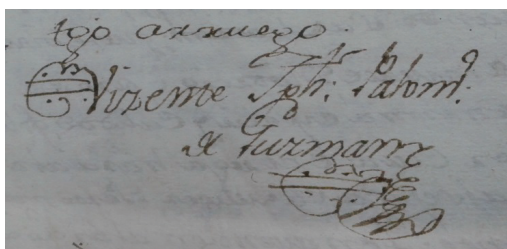 tgo a rruego
Vizente Jph: Palomr.
de Guzman